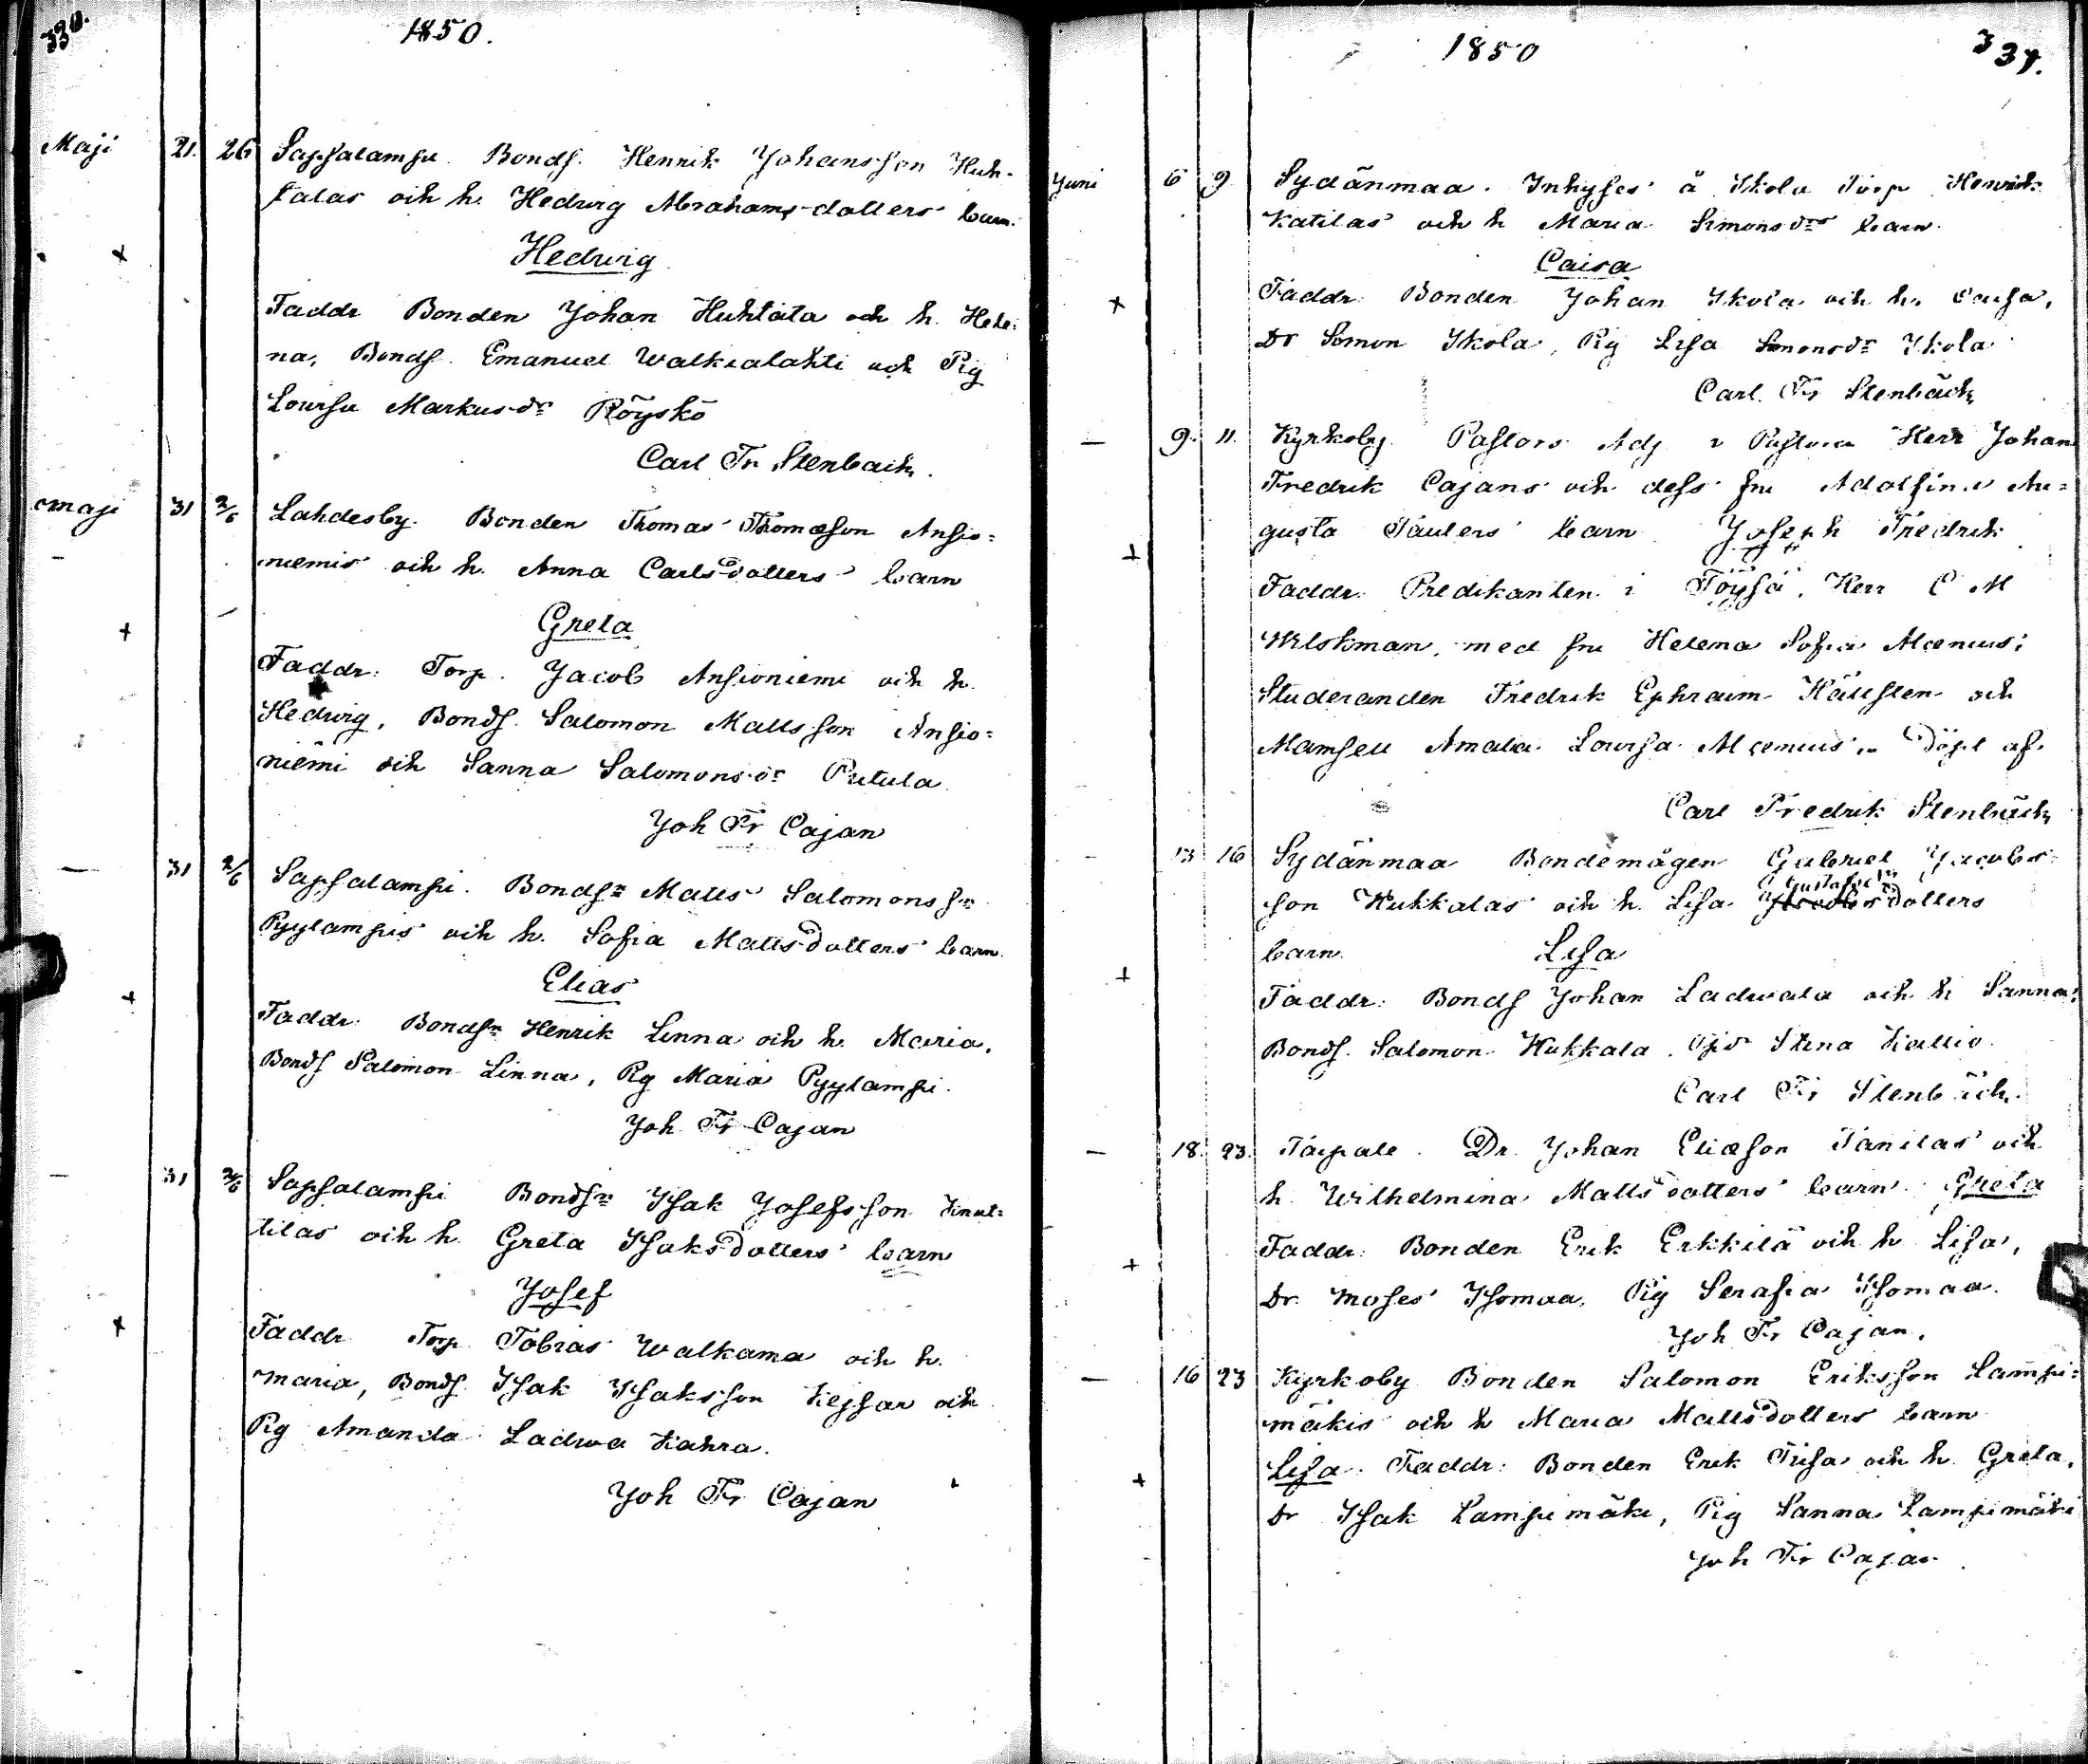 330.
1850.
Maji 21. 26 Sapsalampi. Bonds. Henrik Johansson Huh-
talas och h. Hedvig Abrahams-dotters barn.
Hedwig
Faddr Bonden Johan Huhtala och h. Hele-
na, Bonds. Emanuel Walkialahti och Pig
Lovisa Markusdr Röyskö
Carl Fr Stenbäck.
Maji 31 2/6 Lahdesby. Bonden Thomas Thomasson Ansio=
niemis och h. Anna Carlsdotters barn
Greta
Faddr: Torp. Jacob Ansioniemi och h.
Hedvig, Bonds. Salomon Mattsson Ansio=
niemi och Sanna Salomonsdr
Joh Fr Cajan
— 31 2/6 Sapsalampi. Bondsn Matts Salomonssn
Pyylampis och h. Sofia Mattsdotters barn.
Elias
Faddr. Bondsn Henrik Linna och h. Maria,
Bonds Salomon Linna, Pig Maria Pyylampi.
Joh Fr Cajan
— 31 2/6 Sapsalampi Bondsn Isak Josefsson Knut=
tilas och h. Greta Isaksdotters barn
Josef
Faddr Torp Tobias Walkama och h.
Maria, Bonds. Isak Isaksson Kejsar och
Pig Amanda Ladwa Kahra.
Joh Fr Cajan
1850
331.
Juni 6 9 Sydänmaa. Inhyses å Skola Torp Henrik
Katilas och h Maria Simonsdrs barn
Caisa
Faddr. Bonden Johan Ikola och h. Caisa,
Dr Simon Ikola, Pig Lisa Simonsdr Ikola
Carl Fr Stenbäck
— 9. 11. Kyrkoby. Pastors Adj Herr Johan
Fredrik Cajans och dess fru Adolfina Au=
gusta barn Joseph Fredrik
Faddr. Predikanten i Töysä, Herr C M
Wilskman, med fru Helena Sofia Alcenius;
Studeranden Fredrik Ephraim Hällsten och
Mamsell Amalia Lovisa Alcenius. Döpt af
Carl Fredrik Stenbäck
13 16 Sydänmaa Bondemågen Gabriel Jacobs-
son Kukkalas och h. Lisa Gustafsdotters
barn. Lisa
Faddr: Bonds Johan Ladwala och h Sanna;
Bonds. Salomon Kukkala, Stina Kallio.
Carl Fr Stenbäck
— 18. 23. Taipale. Dr. Johan Eliasson Tanilas och
h. Wilhelmina Mattsdotters barn Greta
Faddr: Bonden Erik Erkkilä och h Lisa,
Dr. Moses Isomaa, Pig Serafia Isomaa.
Joh Fr Cajan.
— 16 23 Kyrkoby Bonden Salomon Eriksson Lampi=
mäkis och h Maria Mattsdotters barn
Lisa. Faddr: Bonden Erik och h. Greta,
Dr Isak Lampimäki, Pig Sanna Lampimäki
Joh Fr Cajan.